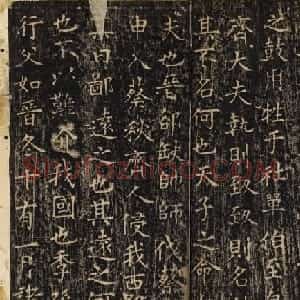 之鼓用牲于社單伯至自
齊大夫執則致致則名
其不名何也天子之命
夫也晉郤缺帥師伐蔡
申入蔡秋齊人侵我西
曰鄙遠之也其遠之
也不以難介我國也季
行父如晉冬十有一月諸